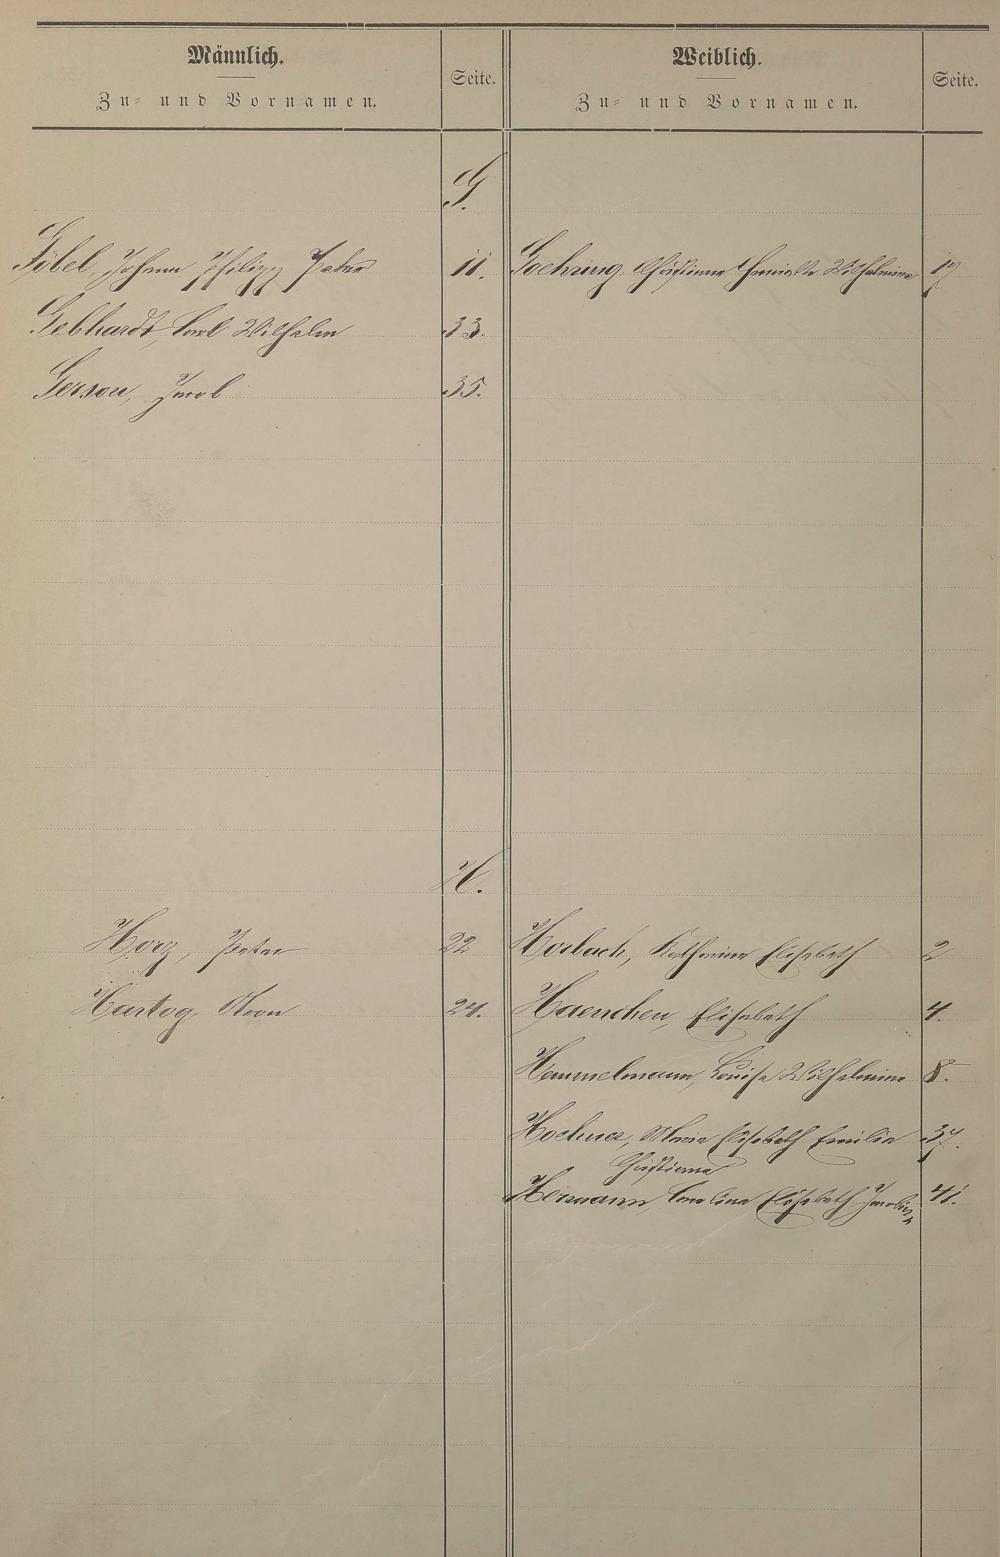 Männlich.
Zu- und Vornamen.
Seite.
Weiblich.
Zu- und Vornamen.
Seite.
G.
Göbel, Johann Philipp Peter 11.
Goehring, Christiane Henriette Wilhelmine 17
Gebhardt, Carl Wilhelm 33.
Gerson, Jacob 35.
H.
Horz, Peter 22
Horbach, Katharine Elisabeth 2
Hartog, Aron 24.
Haenchen, Elisabeth 4.
Hemmelmann, Louise Wilhelmine 8.
Marie Elisabeth Emilie 37.
Christiane
Hermann, Caroline Elisabeth Jacobine 41.